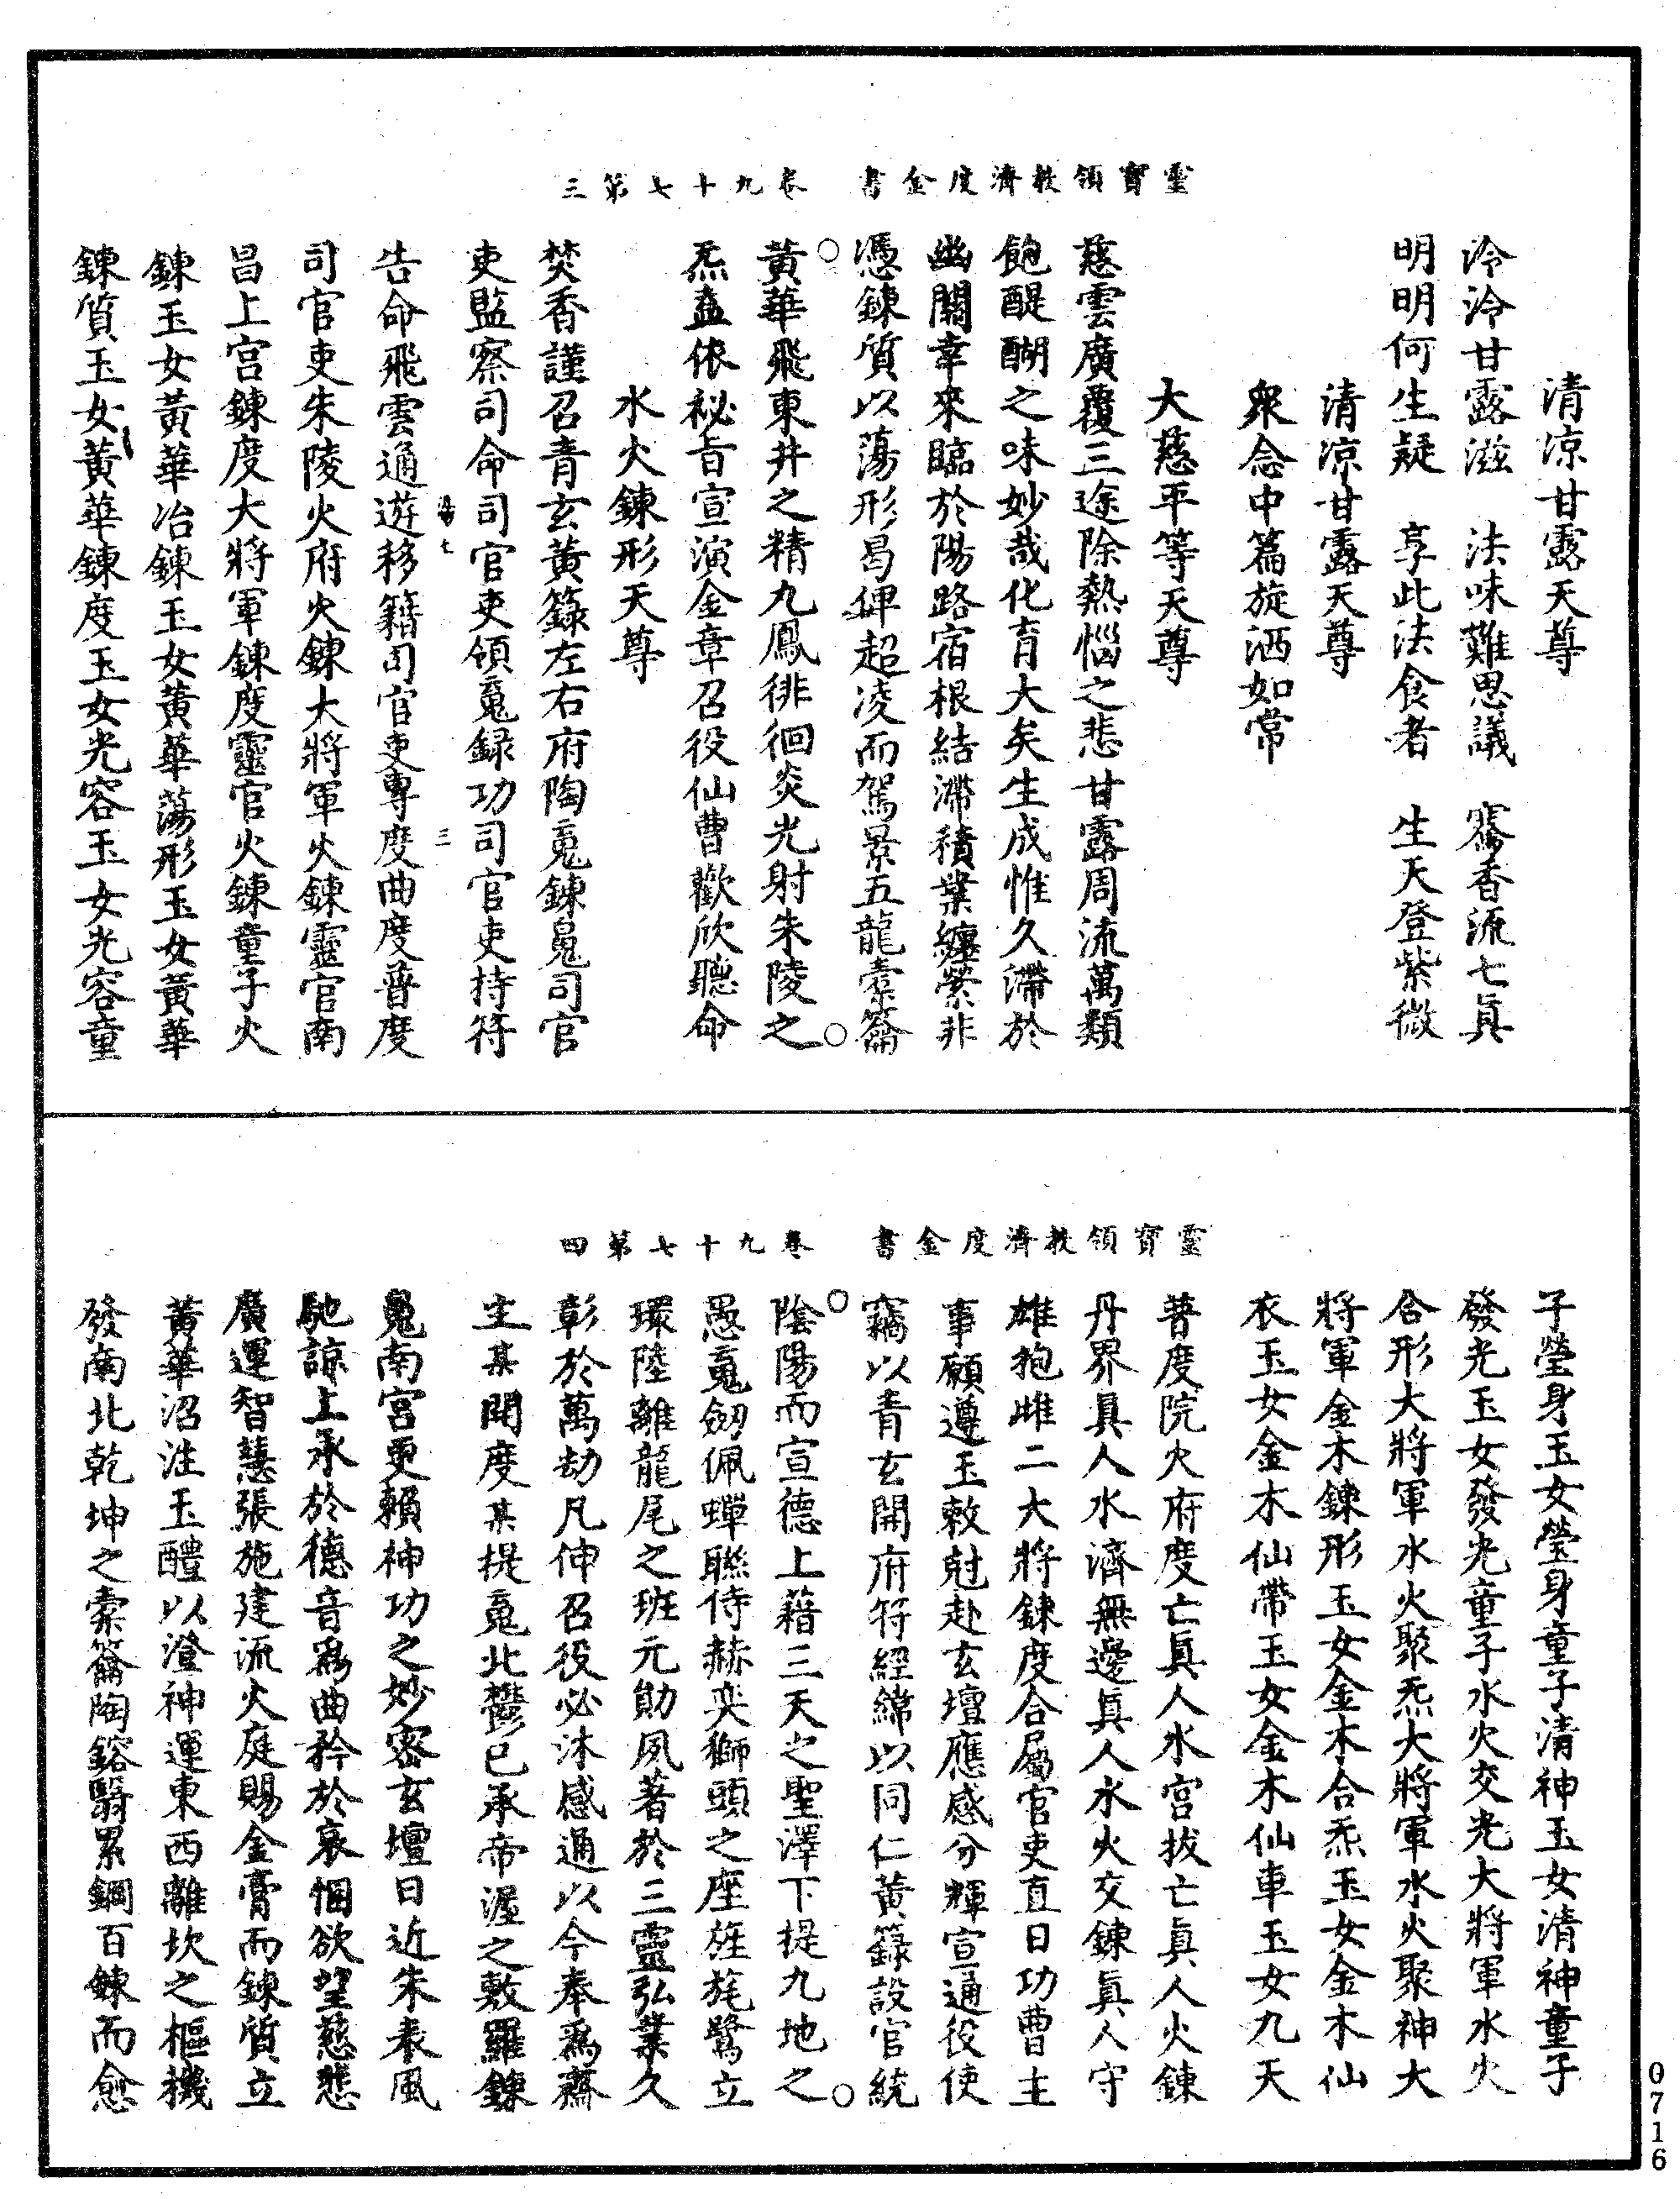 靈寶領教濟度金書　卷九十七第三
清凉甘露天尊
泠泠甘露滋　法味難思議　騫香流七眞
明明何生疑　享此法食者　生天登紫微
清凉甘露天尊
衆念中篇旋洒如常
大慈平等天尊
慈雲廣覆三途除熱惱之悲甘露周流萬類
飽醍醐之味妙哉化育大矣生成惟久滯於
幽關幸來臨於陽路宿根結滯積業纏縈非
憑鍊質以蕩形曷俾超凌而駕景五龍橐籥
黃華飛東井之精九鳳徘徊炎光射朱陵之
炁蓋依祕旨宣演金章召役仙曹歡欣聽命
水火鍊形天尊
焚香謹召青玄黃籙左右府陶䰟鍊䰟司官
吏監察司命司官吏領䰟録功司官吏持符
告命飛雲通遊移籍司官吏專度曲度普度
司官吏朱陵火府火鍊大將軍火鍊靈官南
昌上宮鍊度大將軍鍊度靈官火鍊童子火
鍊玉女黃華冶鍊玉女黃華蕩形玉女黃華
鍊質玉女黃華鍊度玉女光容玉女光容童
靈寶領教濟度金書　卷九十七第四
子瑩身玉女瑩身童子清神玉女清神童子
發光玉女發光童子水火交光大將軍水火
合形大將軍水火聚炁大將軍水火聚神大
將軍金木鍊形玉女金木合炁玉女金木仙
衣玉女金木仙帶玉女金木仙車玉女九天
普度院火府度亡眞人水宮拔亡眞人火鍊
丹界眞人水濟無邊眞人水火交鍊眞人守
雄抱雌二大將鍊度合屬官吏直日功曹主
事願遵玉敕尅赴玄壇應感分輝宣通役使
竊以青玄開府符經緯以同仁黃籙設官統
陰陽而宣德上藉三天之聖澤下提九地之
愚䰟劒佩蟬聯侍赫奕獅頭之座旌旄鷺立
環陸離龍尾之班元勛夙著於三靈弘業久
彰於萬劫凡伸召役必沐感通以今奉爲齋
主某開度某提䰟北酆已承帝渥之敷羅鍊
䰟南宮更賴神功之妙密玄壇日近朱表風
馳諒上承於德音爲曲矜於哀悃欲望慈悲
廣運智慧張施建流火庭賜金膏而鍊質立
黃華沼注玉醴以澄神運東西離坎之樞機
發南北乾坤之橐籥陶鎔翳累鋼百鍊而愈
0716